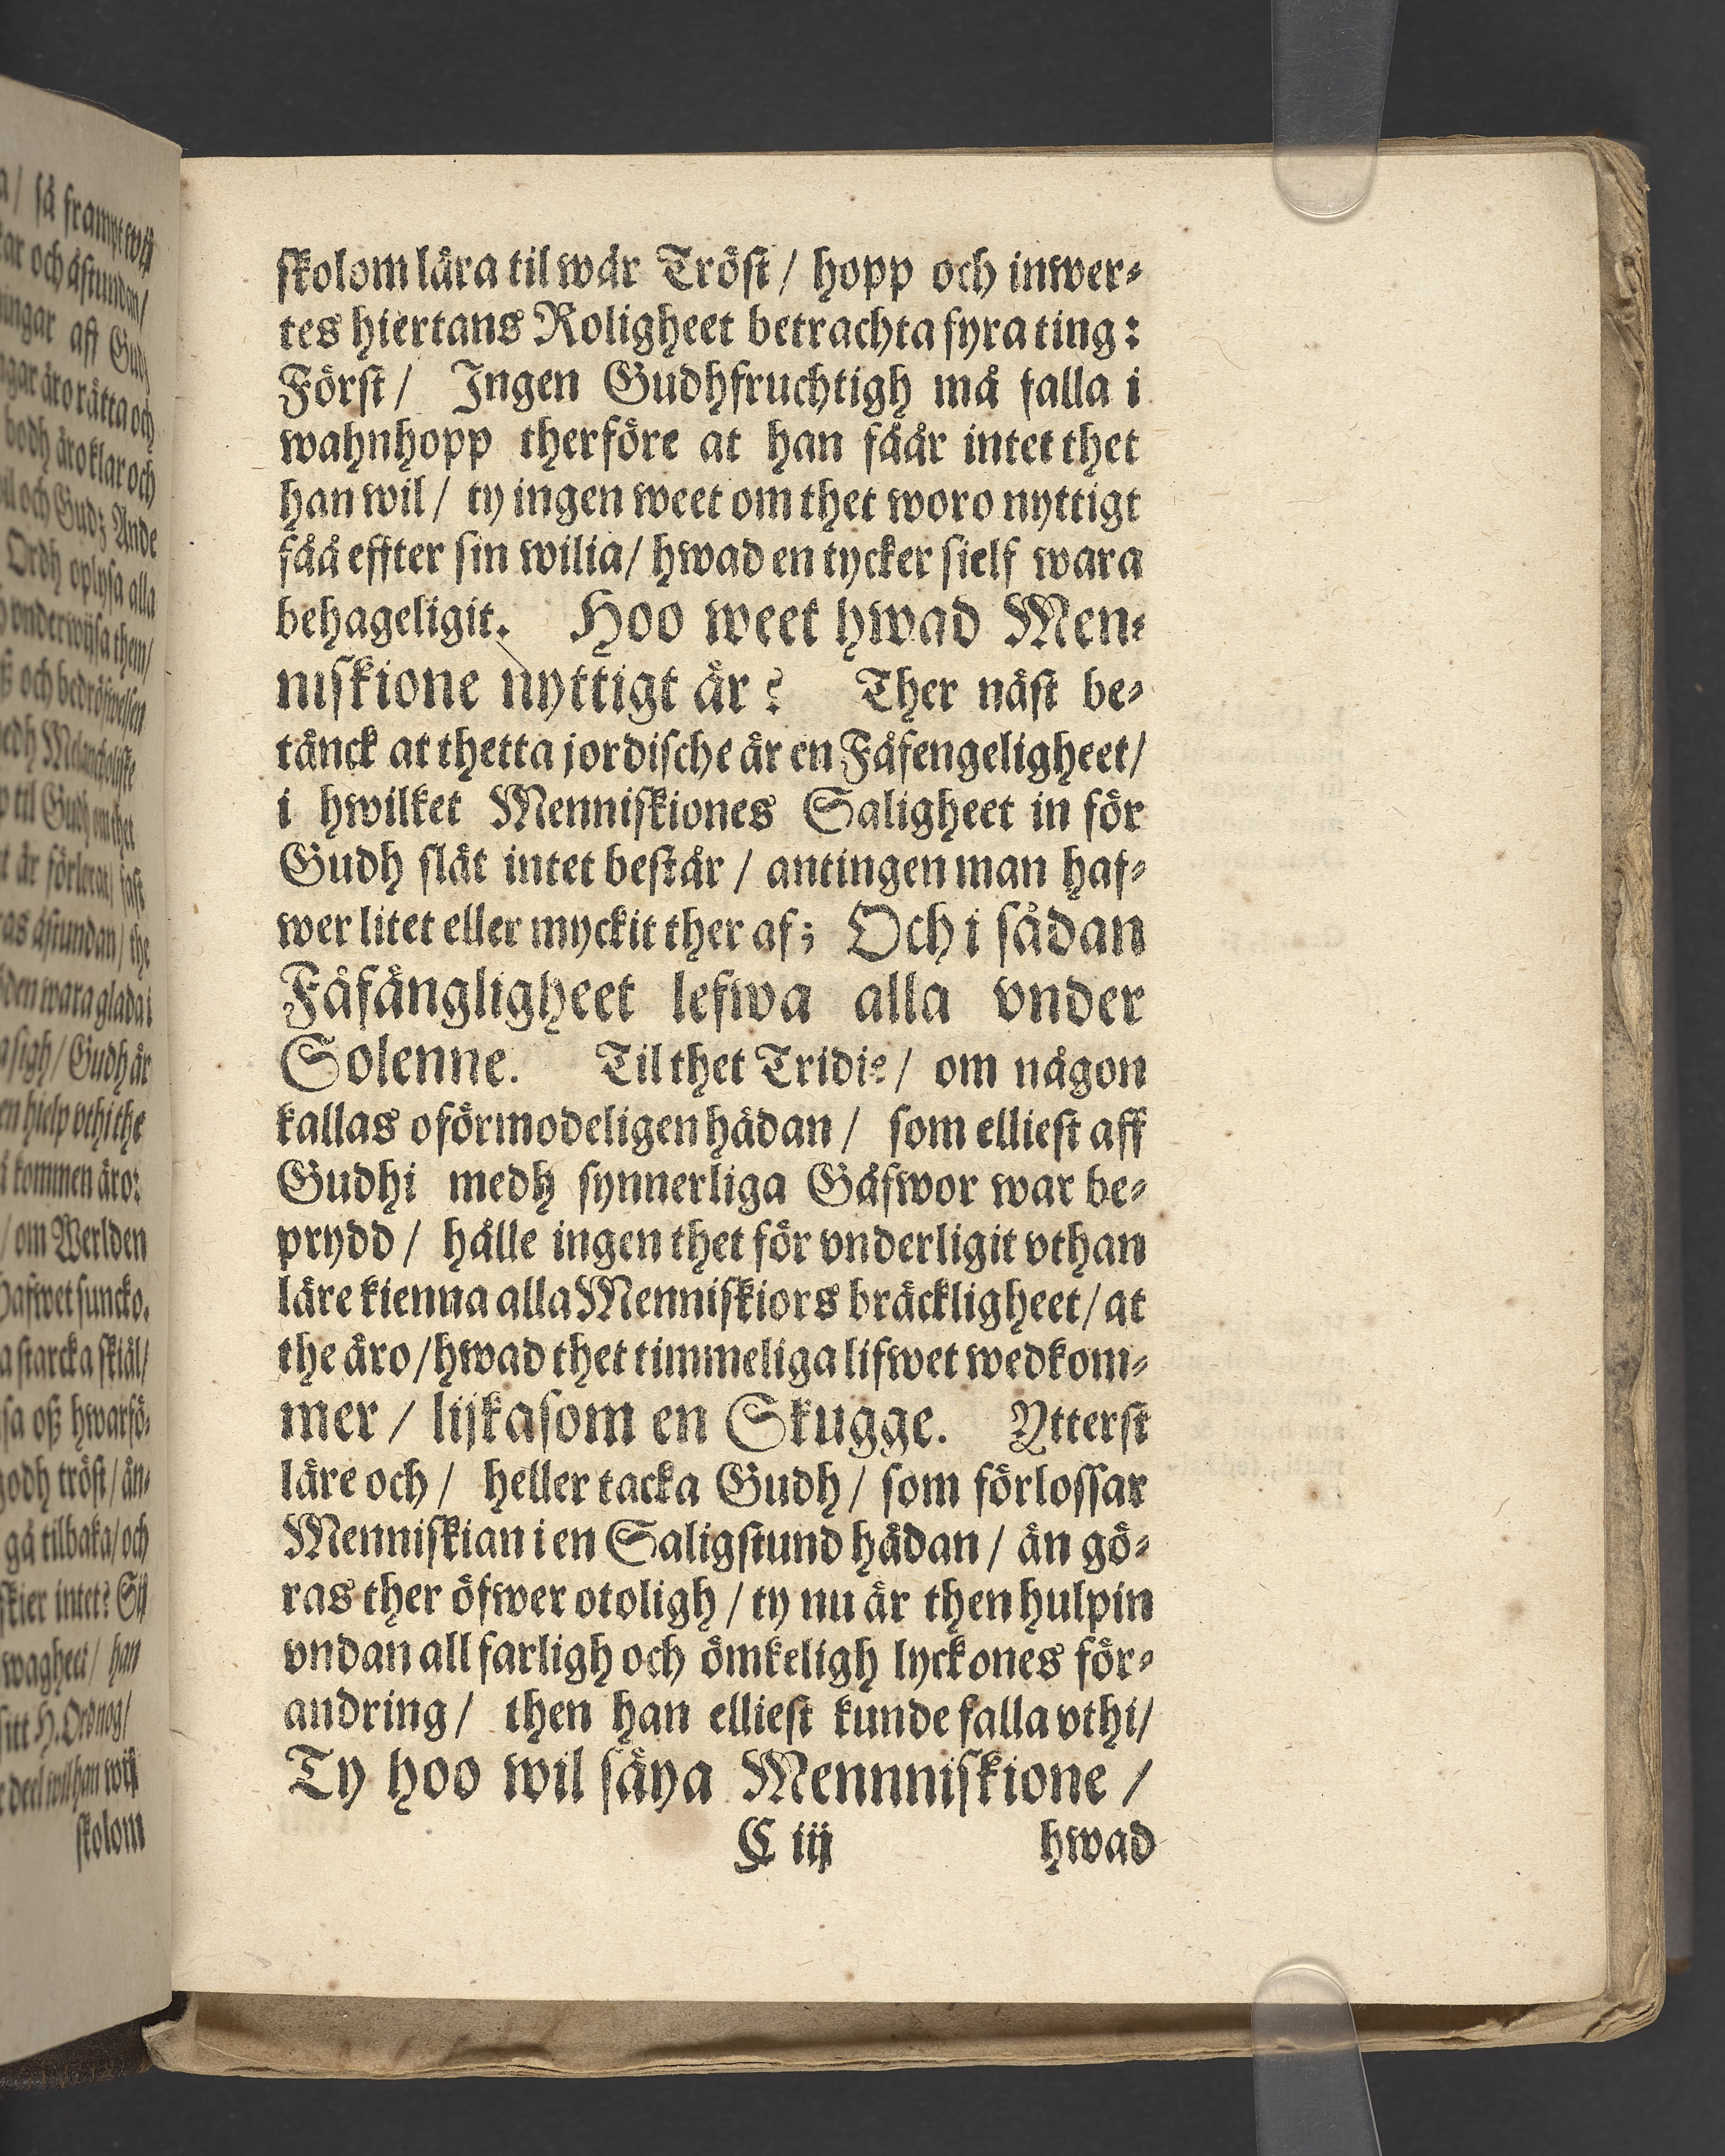 skolom lära til wår Tröst / hopp och inwer-
tes hiertans Roligheet betrachta fyra ting:
Först / Ingen Gudhfruchtigh må falla i
wahnhopp therföre at han fåår intet thet
han wil / ty ingen weet om thet woro nyttigt
fåå effter sin wilia / hwad en tycker sielf wara
behageligit. Hoo weet hwad Men-
niskione nyttigt är? Ther näst be-
tänck at thetta jordische är en Fåfengeligheet /
i hwilket Menniskiones Saligheet in för
Gudh slät intet består / antingen man haf-
wer litet eller myckit ther af; Och i sådan
Fåfängligheet lefwa alla vnder
Solenne. Til thet Tridie / om någon
kallas oförmodeligen hådan / som elliest aff
Gudhi medh synnerliga Gåfwor war be-
prydd / hålle ingen thet för vnderligit vthan
läre kienna alla Menniskiors bräckligheet / at
the äro / hwad thet timmeliga lifwet wedkom-
mer / lijkasom en Skugge. Ytterst
läre och / heller tacka Gudh / som förlossar
Menniskian i en Salig stund hådan / än gö-
ras ther öfwer otoligh / ty nu är then hulpin
vndan all farligh och ömkeligh lyckones för-
andring / then han elliest kunde falla vthi /
Ty hoo wil säya Mennniskione /
C iij hwad